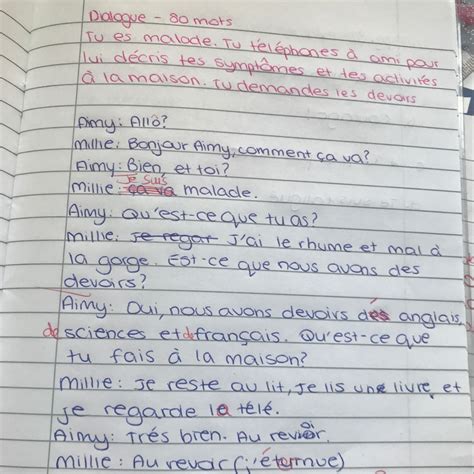 Dialogue - 80 mots
Tu es malade. Tu téléphones à ami pour
lui décris tes symptômes et tes activités
à la maison. Tu demandes les devoirs
Amy: Allô?
Millie: Bonjour Aimy, comment ça va?
Aimy: Bien, et toi?
Je suis
Millie: ça va malade.
Aimy: Qu'est-ce que tu as?
Millie: Je regar J'ai le rhume et mal à
la gorge. Est-ce que nous avons des
devoirs?
Aimy: Oui, nous avons devoirs des anglais,
de sciences et de français. Qu'est-ce que
tu fais à la maison?
Millie: Je reste au lit, Je lis une livre, et
je regarde la télé.
Aimy: Trés bien. Au revoir.
Millie: Au revoir (j'éternue)